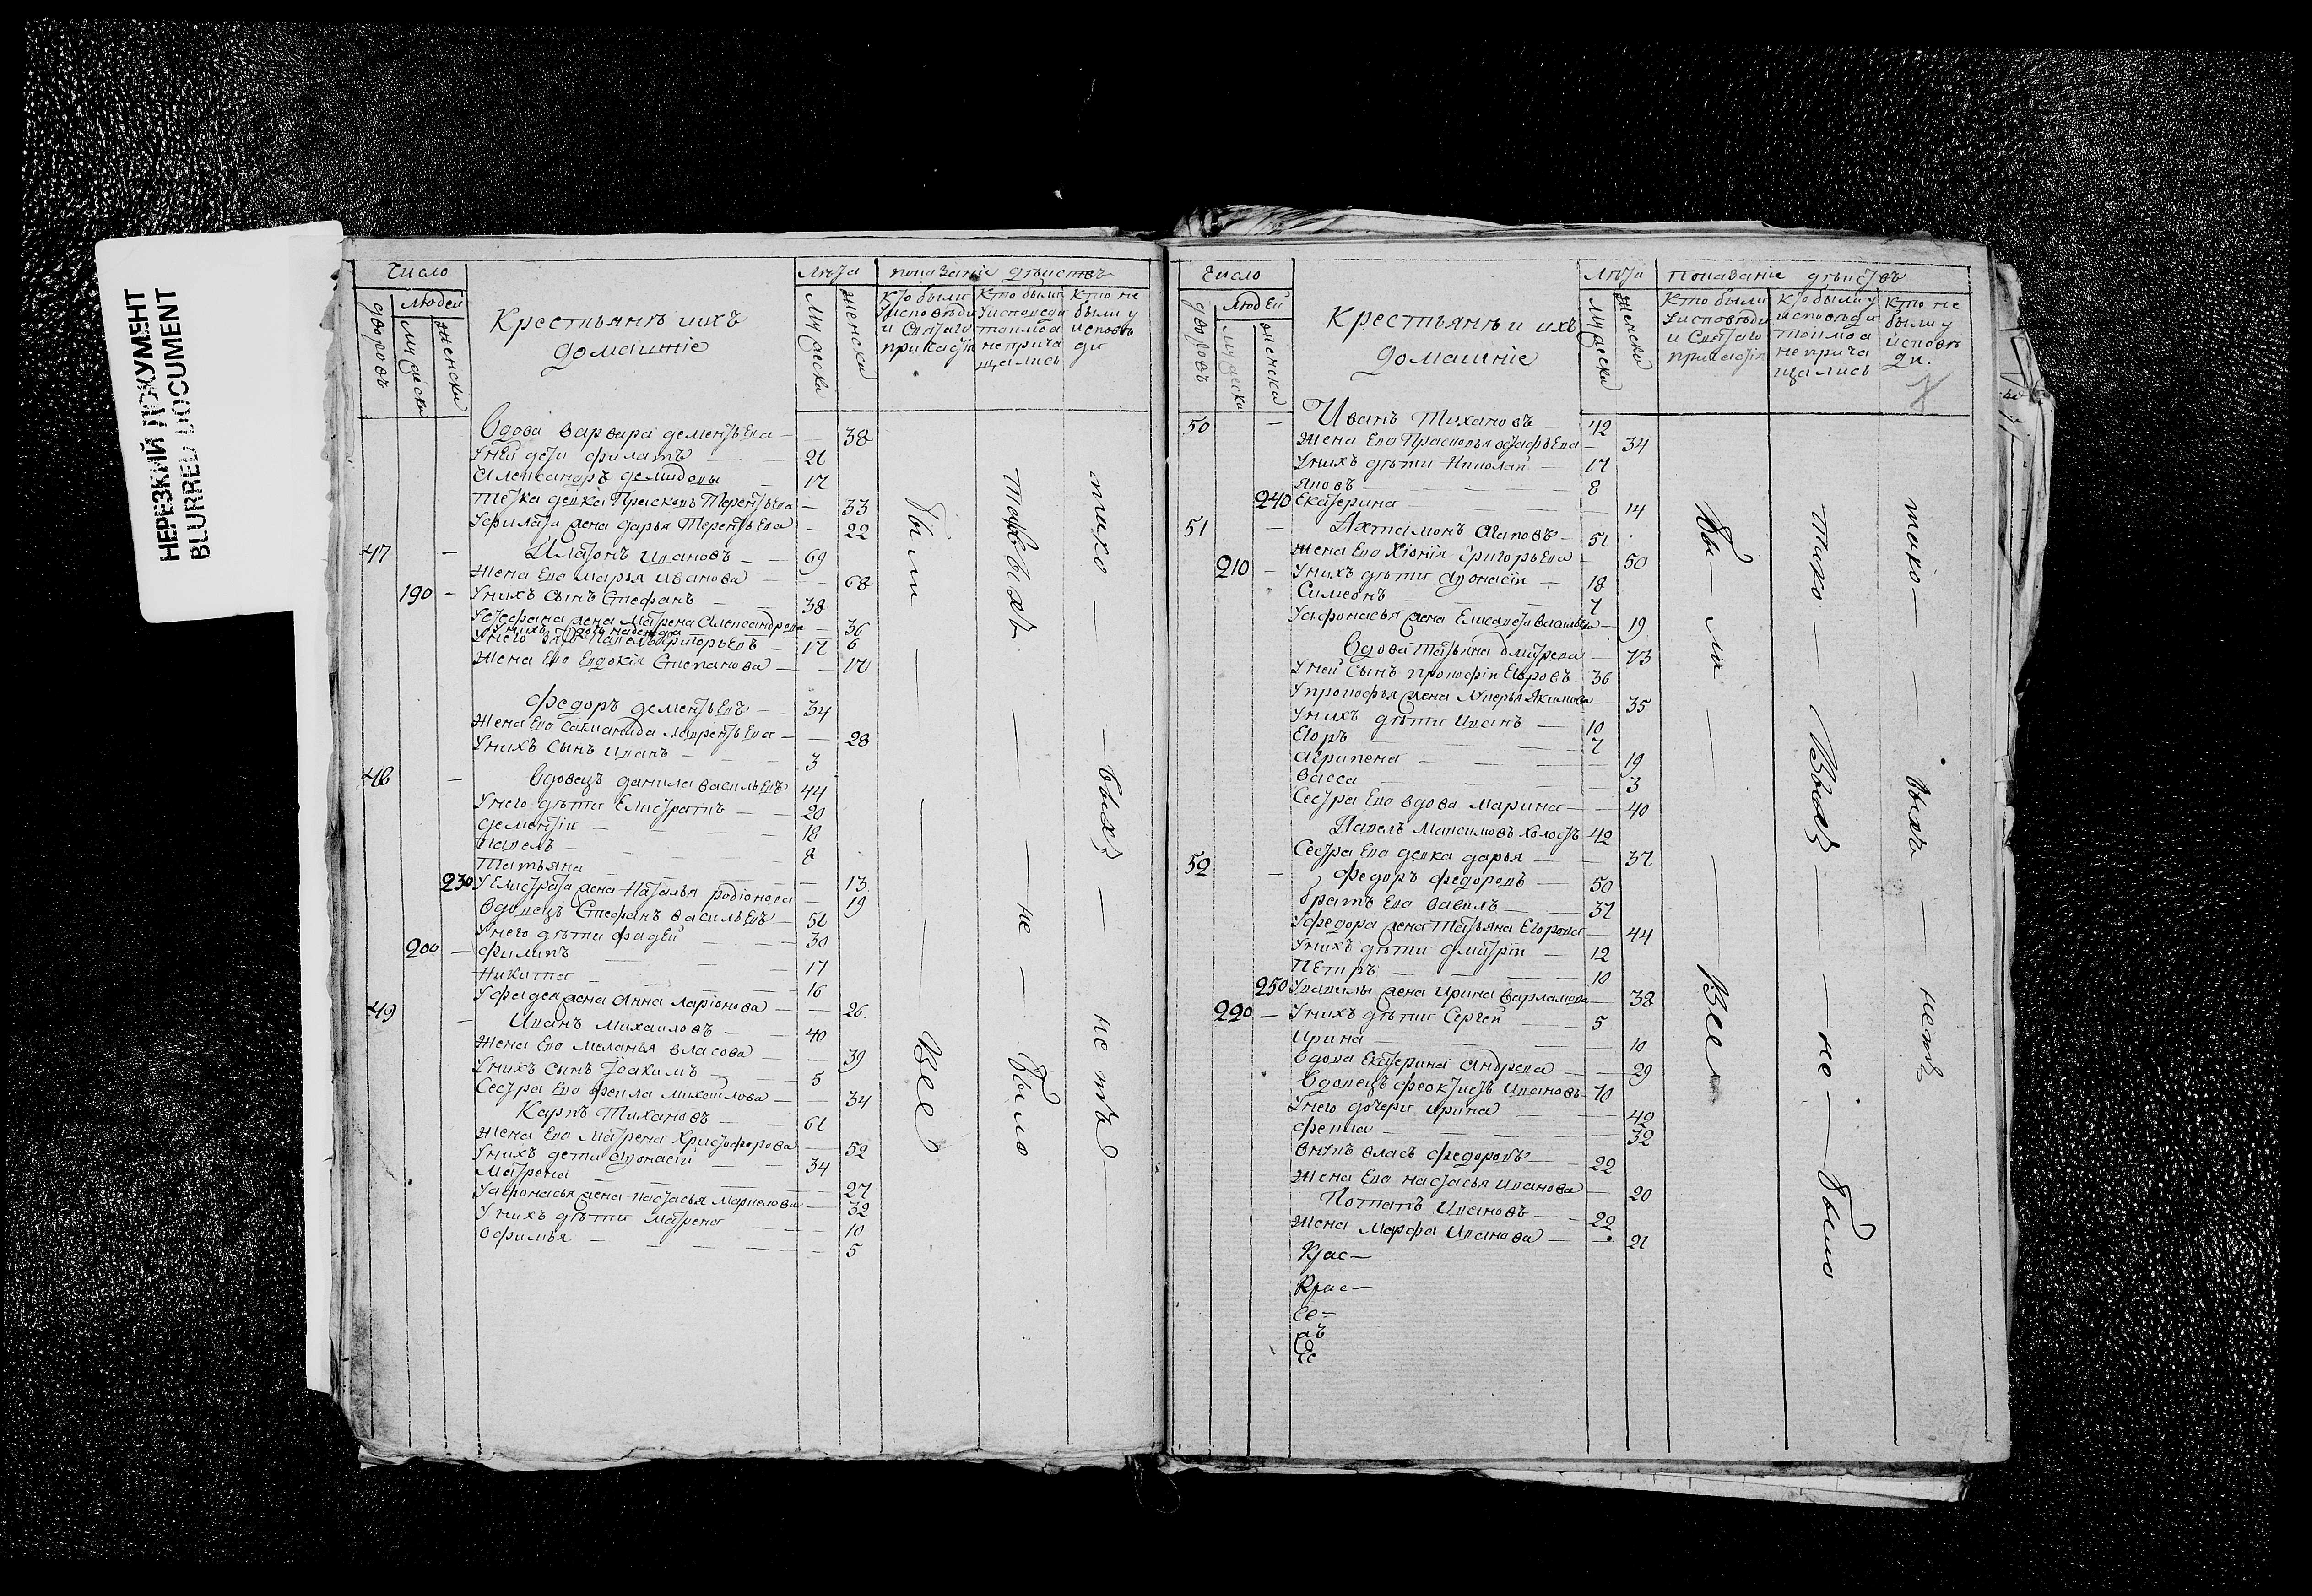 НЕРЕЗКИЙ ДОКУМЕНТ
BLURRED DOCUMENT
Число
дворовъ
людей
мужески
женски
Крестьянъ ихъ
домашніе
Лѣта
мужески
женски
показаніе дѣиствъ
Кто были
у исповѣди
и Святаго
причастія
Кто были
у исповеди
токмо а
не прича
щались
Кто не
были у
исповѣ
ди
Вдова варвара дементьева — — 38
У ней дети филатъ — 21
Александръ демидовы — 17
тетка девка Прасковь Терентьева — 33
У филата жена дарья Терентьева — 22
47 — Платонъ ивановъ — 69
жена Ево марья иванова — 68
190 — У нихъ сынъ Стефанъ — 38
У Стефана жена Матрена Александрова — 36
У нихъ дочь надежда 6
У него зять павелъ григорьевъ — 17
жена Ево Евдокія Степанова — 17
федоръ дементьевъ — 34
жена Ево Саламанида лаврентьева — 28
У нихъ сынъ иванъ — 3
48 — Вдовецъ данила васильевъ 44
У него дѣти Елистратъ — 20
дементіи — 18
павелъ — 8
татьяна — 13
230 У Елистрата жена Наталья родіонова — 19
Вдовецъ Стефанъ васильевъ — 51
У него дѣти фадѣй — 30
200 — филипъ — 17
никита — 16
У фадея жена Анна ларіонова — 26
49 — Иванъ михаиловъ — 40
жена Ево меланья власова — 39
У нихъ сынъ Іоакимъ — 5
Сестра Ево фекла михаилова — 34
Карпъ Тихановъ — 61
жена Ево матрена Христофорова — 52
У нихъ дети афонасіи — 34
матрена — 27
У афонасья жена настасья маркелова — 32
У нихъ дѣти матрена — 10
офимья — 5
были — — — — Все
таковыхъ — — не — было
тако — — выхъ — нетъ
Число
дворовъ
людей
мужески
женски
Крестьянъ и ихъ
домашніе
Лѣта
мужески
женски
показаніе дѣиствъ
Кто были
у исповѣди
и Святаго
причастія
Кто были у
исповѣди
токмо а
не прича
щались
Кто не
были у
исповѣ
ди.
50 — Иванъ Тихановъ 42
жена Ево Прасковья остафьева — 34
У нихъ дѣти Николай — 17
яковъ — 8
240 Екатерина — 14
51 — Пахтамонъ Агаповъ — 51
жена Ево Хіонія григорьева — 50
210 — У нихъ дѣти афонасіи — 18
Симеонъ — 7
У афонасья жена Елисавета васильева — 19
Вдова татьяна дмитрева — 73
У ней сынъ прокофіи Егоровъ — 36
У прокофья жена лукерья якимова — 35
У нихъ дѣти иванъ — 10
Егоръ — 7
агрипена — 19
васса — 3
Сестра Ево вдова марина — 40
Павелъ Максимовъ холостъ 42
Сестра Ево девка дарья — 37
52 — федоръ федоровъ — 50
братъ Ево вавилъ — 37
У федора жена татьяна Егорова — 44
У нихъ дѣти дмитріи — 12
петръ — 10
250 У вавилы жена ирина варламова — 38
220 — У нихъ дѣти Сергей — 5
ирина — 10
Вдова Екатерина Андрева — 29
Вдовецъ феоктистъ ивановъ 70
У него дочери ирина — 42
фекла — 32
внукъ власъ федоровъ — 22
жена Ево настасья иванова — 20
Потапъ ивановъ — 22
жена марфа иванова — 21
Бы — ли — — — Все
тако — — выхъ — — не — было
тако — — выхъ — нетъ